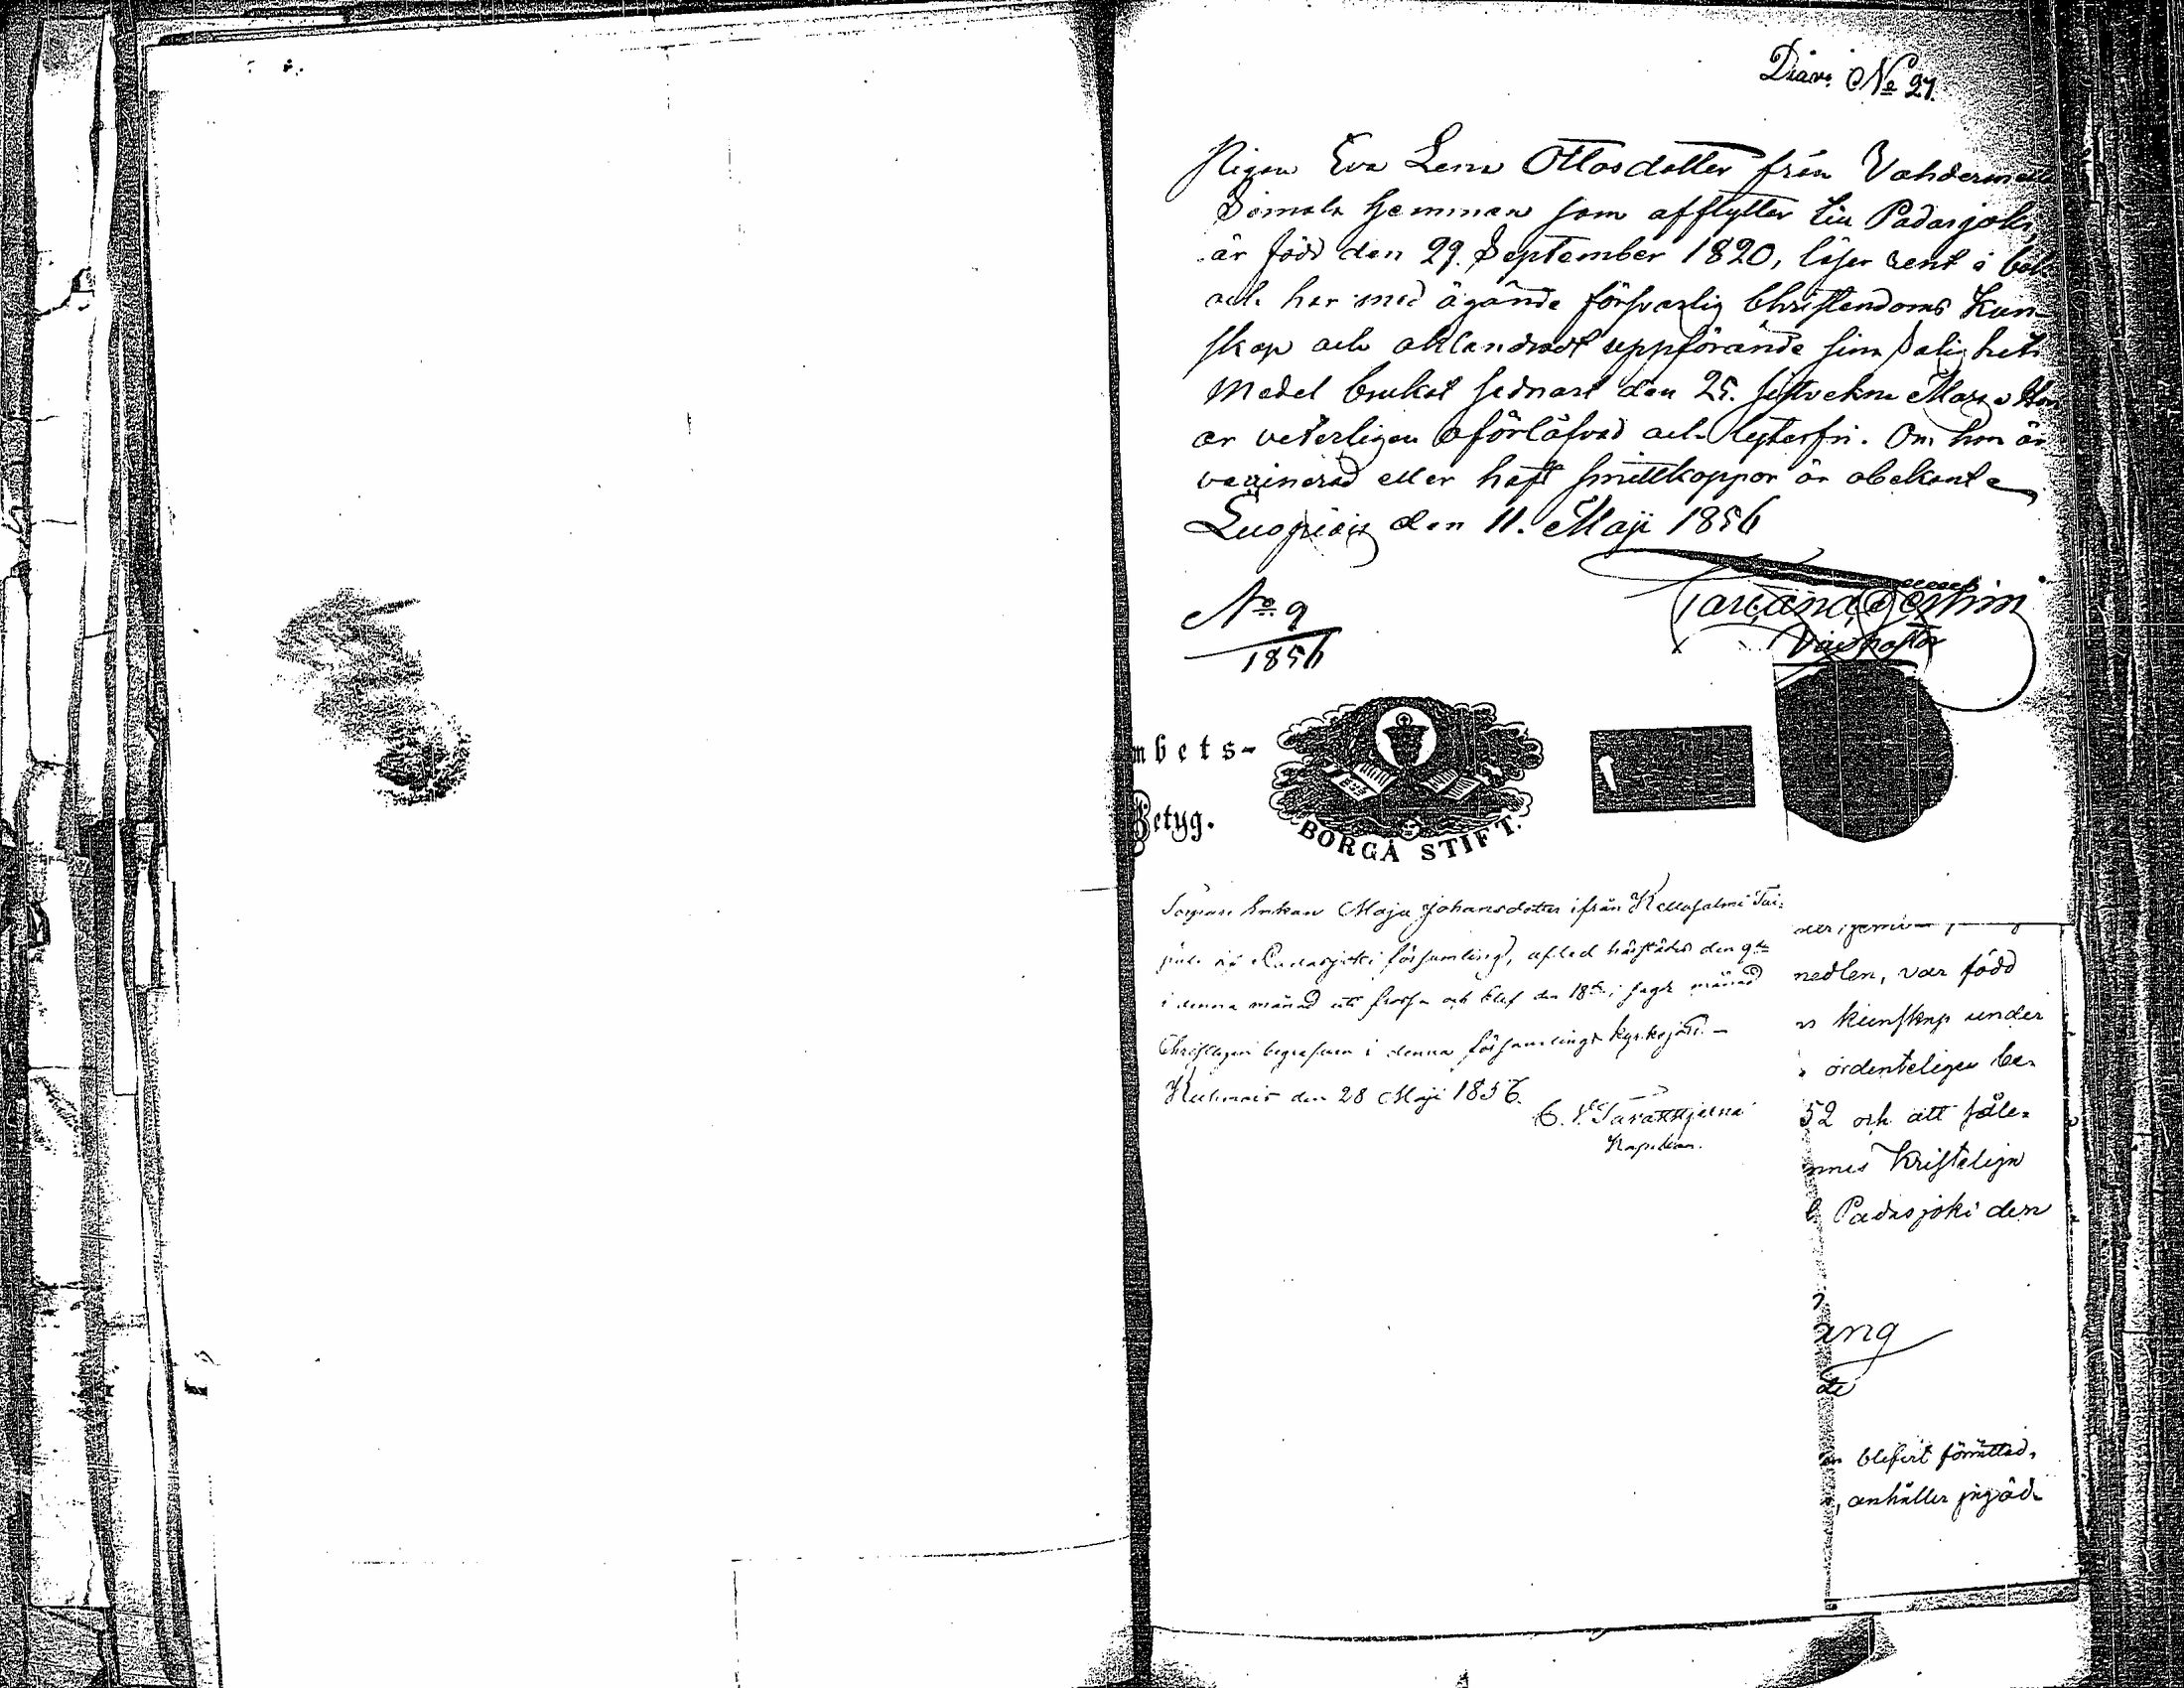 Diar. No 27.
Pigan Eva Lena Ottosdotter från Vahdermetsä
Simola Hemman som afflyttar till Padasjoki,
är född den 29. September 1820, läser rent i bok
och har med ägande försvarlig Christendoms Kun-
skap och oklandradt uppförande sina Salighets
Medel brukat sednast den 25. sistvekne Mars. Hon
är veterligen oförlåfvad och lyterfri. Om hon är
vaccinerad eller haft smittkoppor är obekant
Luopiois den 11. Maji 1856
No 9
1856
mbets-
Betyg.
BORGÅ STIFT.
Enkan Maja Johansdotter ifrån Kellosalmi Tai-
pale Padasjoki församling, afled härstädes den 9de
i denna månad utaf frossa och blef den 18de i sagde månad
Christligen begrafven i denna församlings kyrkojord.-
Kuhmois den 28 Maji 1856.
Kapellan.
nedlen, var född
kunskap under
ordenteligen be-
52 och att såle-
nnes Kristelign
Padasjoki den
ang
blifvit förrättad,
, anhåller jag öd-